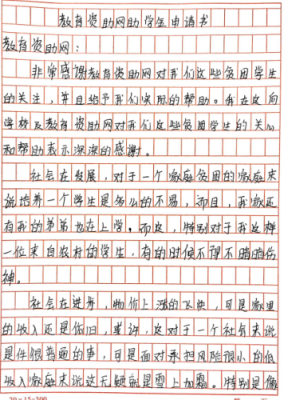 教育资助网助学生申请书
教育资助网：
非常感谢教育资助网对我们这些贫困学生
的关注，并且给予我们实际的帮助。我在这向
学校及教育资助网对我们这些贫困学生的关心
和帮助表示深深的感谢。
社会在发展，对于一个家庭贫困的家庭来
说培养一个学生是多么的不易，而且，我家还
有我的弟弟也在上学。而这，特别对于我这样
一位来自农村的学生，有的时候不得不暗暗伤
神。
社会在进步，物价上涨的飞快，可是家里
的收入还是依旧，或许，这对于一个社会来说
是件很普通的事，可是面对承担风险很小的低
收入家庭来说这无疑就是雪上加霜。特别是像
20×15=300